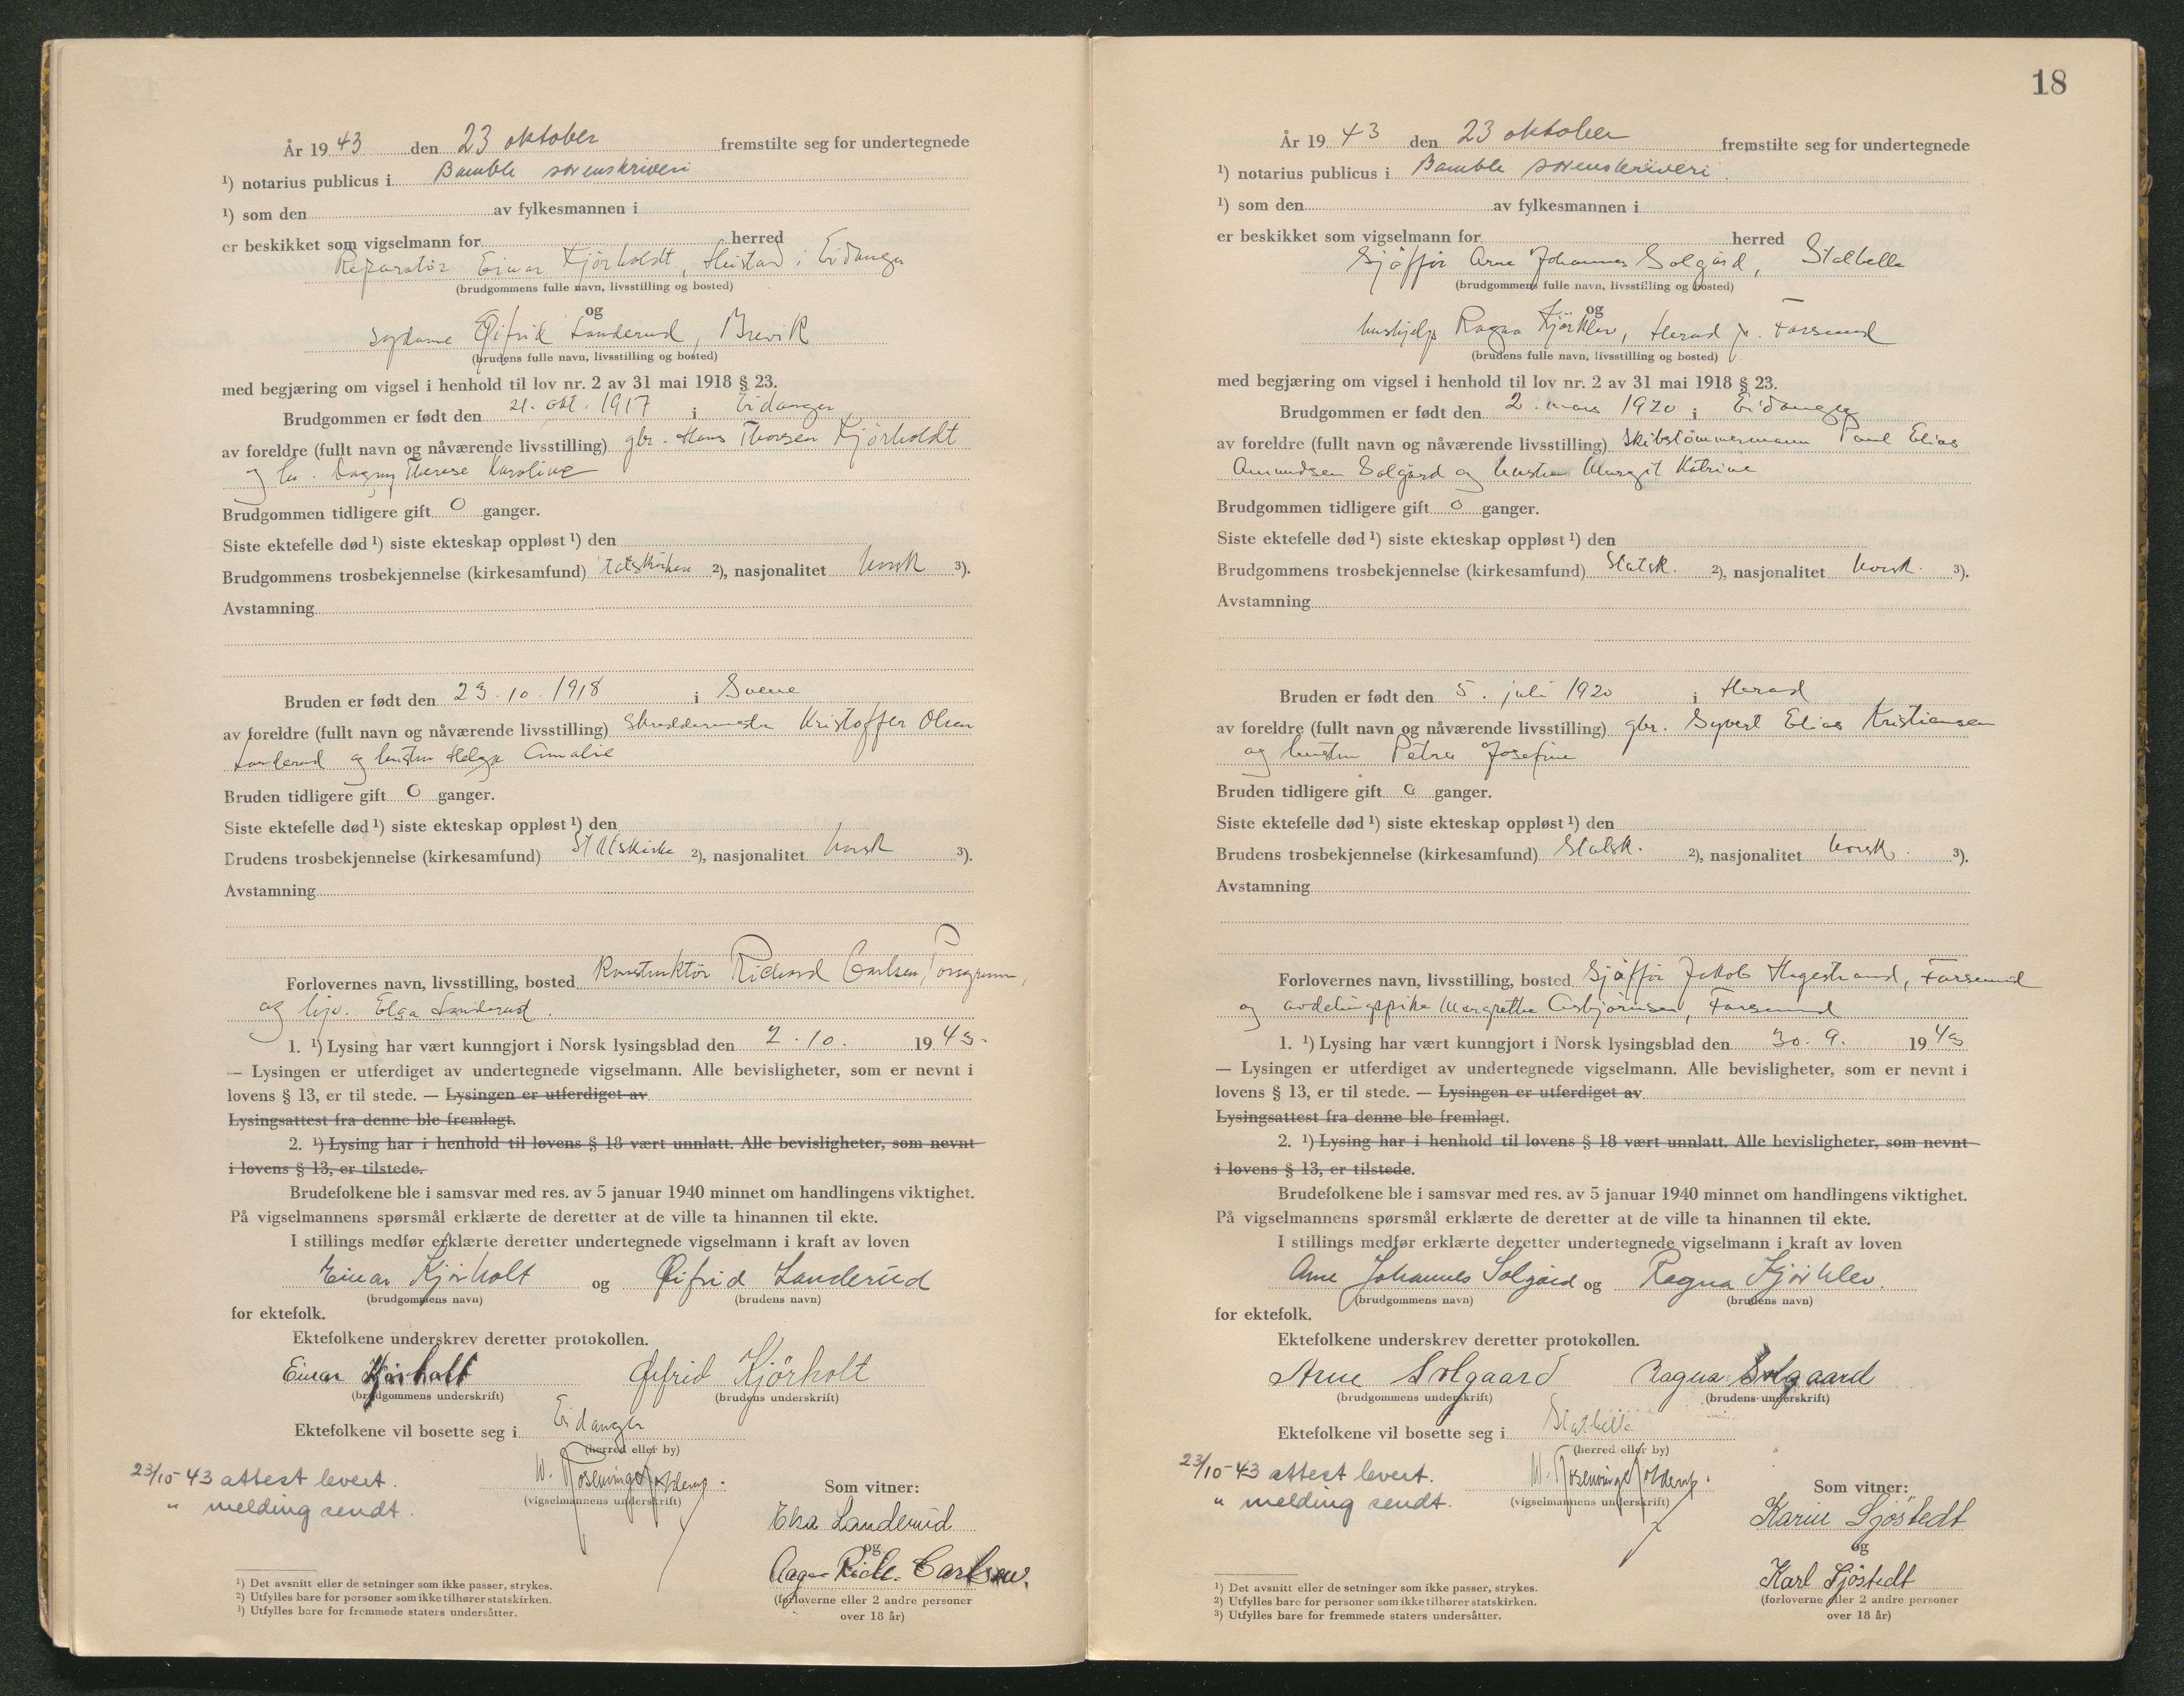 År 19 43 den 23 oktober fremstilte seg for undertegnede
¹) notarius publicus i Bamble sorenskriveri
¹) som den av fylkesmannen i
er beskikket som vigselmann for herred
Reparatør Einar Kjörholdt, Heistad i Eidanger
(brudgommens fulle navn, livsstilling og bosted)
og
sydame Øifrid Landerud, Brevik
(brudens fulle navn, livsstilling og bosted)
med begjæring om vigsel i henhold til lov nr. 2 av 31 mai 1918 § 23.
Brudgommen er født den 21. okt. 1917 i Eidanger
av foreldre (fullt navn og nåværende livsstilling) gbr. Hans Thorsen Kjörholdt
og hu. Dagny Therese Karoline
Brudgommen tidligere gift 0 ganger.
Siste ektefelle død ¹) siste ekteskap oppløst ¹) den
Brudgommens trosbekjennelse (kirkesamfund) statskirken ²), nasjonalitet norsk ³).
Avstamning
Bruden er født den 23.10.1918 i Svene
av foreldre (fullt navn og nåværende livsstilling) Skreddermester Kristoffer Olsen
Landerud og hustru Helga Amalie
Bruden tidligere gift 0 ganger.
Siste ektefelle død ¹) siste ekteskap oppløst ¹) den
Brudens trosbekjennelse (kirkesamfund) Statskirke ²), nasjonalitet norsk ³).
Avstamning
Forlovernes navn, livsstilling, bosted Konstruktør Richard Carlsen, Porsgrunn,
og Elsa Landerud.
1. ¹) Lysing har vært kunngjort i Norsk lysingsblad den 2.10. 19 43.
— Lysingen er utferdiget av undertegnede vigselmann. Alle bevisligheter, som er nevnt i
lovens § 13, er til stede. — Lysingen er utferdiget av
Lysingsattest fra denne ble fremlagt.
2. ¹) Lysing har i henhold til lovens § 18 vært unnlatt. Alle bevisligheter, som nevnt
i lovens § 13, er tilstede.
Brudefolkene ble i samsvar med res. av 5 januar 1940 minnet om handlingens viktighet.
På vigselmannens spørsmål erklærte de deretter at de ville ta hinannen til ekte.
I stillings medfør erklærte deretter undertegnede vigselmann i kraft av loven
Einar Kjörholt og Øifrid Landerud
(brudgommens navn) (brudens navn)
for ektefolk.
Ektefolkene underskrev deretter protokollen.
Einar Kjörholt Øifrid Kjörholt
(brudgommens underskrift) (brudens underskrift)
Ektefolkene vil bosette seg i Eidanger
(herred eller by)
23/10-43 attest levert.
" melding sendt.
W. Rosenvinge
(vigselmannens underskrift)
Som vitner:
Elsa Landerud
og
Aage Rich. Carlsen.
(forloverne eller 2 andre personer
over 18 år)
¹) Det avsnitt eller de setninger som ikke passer, strykes.
²) Utfylles bare for personer som ikke tilhører statskirken.
³) Utfylles bare for fremmede staters undersåtter.
18
År 19 43 den 23 oktober fremstilte seg for undertegnede
¹) notarius publicus i Bamble sorenskriveri.
¹) som den av fylkesmannen i
er beskikket som vigselmann for herred
Sjåffør Arne Johannes Solgård, Stathelle
(brudgommens fulle navn, livsstilling og bosted)
og
hushjelp Ragna Kjörklev, Herad p. Farsund
(brudens fulle navn, livsstilling og bosted)
med begjæring om vigsel i henhold til lov nr. 2 av 31 mai 1918 § 23.
Brudgommen er født den 2. mars 1920 i Eidanger
av foreldre (fullt navn og nåværende livsstilling) skibstömmermann Paul Elias
Amundsen Solgård og hustru Margit Katrine
Brudgommen tidligere gift 0 ganger.
Siste ektefelle død ¹) siste ekteskap oppløst ¹) den
Brudgommens trosbekjennelse (kirkesamfund) Statsk. ²), nasjonalitet norsk. ³).
Avstamning
Bruden er født den 5. juli 1920 i Herad
av foreldre (fullt navn og nåværende livsstilling) gbr. Syvert Elias Kristiansen
og hustru Petra Josefine
Bruden tidligere gift 0 ganger.
Siste ektefelle død ¹) siste ekteskap oppløst ¹) den
Brudens trosbekjennelse (kirkesamfund) Statsk. ²), nasjonalitet norsk. ³).
Avstamning
Forlovernes navn, livsstilling, bosted Sjåffør Jakob Hagestrand, Farsund
og avdelingspike Margrethe Asbjørnsen, Farsund
1. ¹) Lysing har vært kunngjort i Norsk lysingsblad den 30. 9. 19 43
— Lysingen er utferdiget av undertegnede vigselmann. Alle bevisligheter, som er nevnt i
lovens § 13, er til stede. — Lysingen er utferdiget av
Lysingsattest fra denne ble fremlagt.
2. ¹) Lysing har i henhold til lovens § 18 vært unnlatt. Alle bevisligheter, som nevnt
i lovens § 13, er tilstede.
Brudefolkene ble i samsvar med res. av 5 januar 1940 minnet om handlingens viktighet.
På vigselmannens spørsmål erklærte de deretter at de ville ta hinannen til ekte.
I stillings medfør erklærte deretter undertegnede vigselmann i kraft av loven
Arne Johannes Solgård og Ragna Kjörklev.
(brudgommens navn) (brudens navn)
for ektefolk.
Ektefolkene underskrev deretter protokollen.
Arne Solgaard Ragna Solgaard
(brudgommens underskrift) (brudens underskrift)
Ektefolkene vil bosette seg i Stathelle
(herred eller by)
23/10-43 attest levert.
" melding sendt.
W. Rosenvinge
(vigselmannens underskrift)
Som vitner:
Karin Sjöstedt
og
Karl Sjöstedt
(forloverne eller 2 andre personer
over 18 år)
¹) Det avsnitt eller de setninger som ikke passer, strykes.
²) Utfylles bare for personer som ikke tilhører statskirken.
³) Utfylles bare for fremmede staters undersåtter.